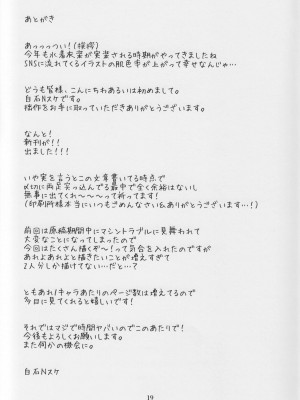 あとがき
あっっっつい!(挨拶)
今年も水着水着が実装される時期がやってきましたね
SNSに流れてくるイラストの肌色率が上がって幸せなんじゃ…
どうも皆様、こんにちわあるいは初めまして。
白石Nスケです。
拙作をお手に取っていただきありがとうございます。
なんと!
新刊が!
出ました!!!
いや実を言うとこの文章書いてる時点で
〆切に両足突っ込んでる最中で全く余裕はないし
無事に出てくれ〜〜〜って祈ってます!
(印刷所様本当にいつもごめんなさい&ありがとうございます…!)
前回は原稿期間中にマシントラブルに見舞われて
大変なことになってしまったので
今回はたくさん描くぞ〜!って気合を入れたのですが
あれよあれよと描きたいことが増えすぎて
2人分しか描けてない…だと…?
ともあれ1キャラあたりのページ数は増えてるので
多目に見てくれると嬉しいです!
それではマジで時間ヤバいのでこのあたりで!
今後もよろしくお願いします。
また何かの機会に。
白石Nスケ
19